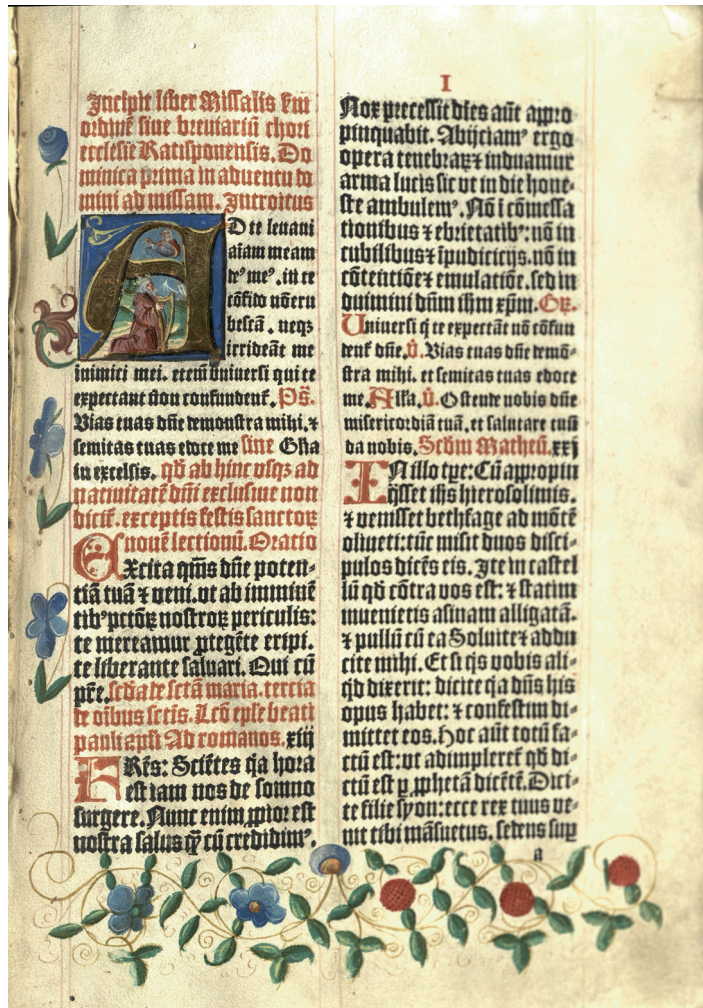 Incipit liber Missalis s̄m
ordinē siue breuiariū chori
ecclesie Ratisponensis. Do
minica prima in aduentu do
mini ad missam. Introitus
AD te leuaui
aīam meam
deꝰ meꝰ. in te
cōfido nō eru
bescā. neqꝫ
irrideāt me
inimici mei. etem vniuersi qui te
expectant non confundent̄. Ps̄.
Vias tuas dn̄e demonstra mihi. ⁊
semitas tuas edoce me sine Gl̄ia
in excelsis. qd̄ ab hinc vsqꝫ ad
natiuitatē dn̄i exclusiue non
dicit̄. exceptis festis sanctoꝝ
nouē lectionū. Oratio
EXcita qm̄s dn̄e poten-
tiā tuā ⁊ veni. vt ab imminē
tibꝰ pctōꝝ nostroꝝ periculis:
te mereamur ꝓtegēte eripi.
te liberante saluari. Qui cū
pr̄e. scd̄a de sctā maria. tercia
de oībus sctīs. Lc̄o ep̄le beati
pauli apl̄i Ad romanos. xiij
FRēs: Sciētes q̇a hora
est iam nos de somno
surgere. Nunc enim ꝓpior est
nostra salus q̄ꝫ cū credidimꝰ.
I
Nox precessit dies aūt appro
pinquabit. Abijciamꝰ ergo
opera tenebraꝝ ⁊ induamur
arma lucis sic vt in die hone-
ste ambulemꝰ. Nō ī cōmessa
tionibus ⁊ ebrietatibꝰ: nō in
cubilibus ⁊ īpudicicijs. nō in
cōtentiōe ⁊ emulatiōe. sed in
duimini dn̄m ih̄m xp̄m. Gr̄.
Uniuersi q̇ te expectāt nō cōfun
dent̄ dn̄e. v̄. Vias tuas dn̄e demō-
stra mihi. et semitas tuas edoce
me. All̄a. v̄. Ostende nobis dn̄e
misericordiā tuā. et salutare tuū
da nobis. Scd̄m Matheū. xxj
IN illo tp̄e: Cū appropin
q̇sset ih̄s hierosolimis.
⁊ venisset bethfage ad mōtē
oliueti: tūc misit duos disci-
pulos dicēs eis. Ite in castel
lū qd̄ cōtra vos est: ⁊ statim
inuenietis asinam alligatā.
⁊ pullū cū ea Soluite ⁊ addu
cite mihi. Et si q̇s vobis ali-
q̇d dixerit: dicite q̇a dn̄s his
opus habet: ⁊ confestim di-
mittet eos. Hoc aūt totū fa-
ctū est: vt adimpleret̄ qd̄ di-
ctū est ꝑ ꝓphetā dicētē. Dici-
te filie syon: ecce rex tuus ve-
nit tibi māsuetus. sedens sup̄
a